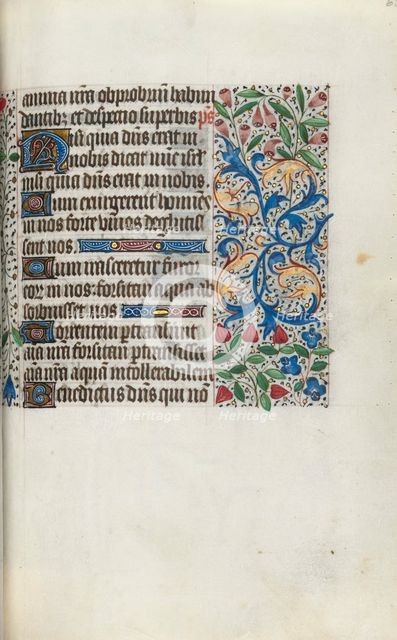 anima nr̄a obprobriū habun
dantibz et despectio superbis ps̄
Nisi quia dn̄s erat in
nobis dicat nūc isrl̄
nisi quia dn̄s erat in nobis.
Cum exurgerent homines
in nos forte viuos deglutis
sent nos.
Cum irasceretur furor
eorz in nos: forsitan aqua ab
sorbuisset nos
Torrentem ptransiuit
aīa nr̄a forsitan ptransisset
aīa nr̄a aquam intollerabilem
Benedictus dn̄s qui nō
Heritage
Heritage
Heritage
Heritage